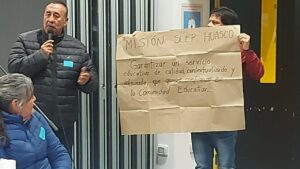 MISIÓN SLEP HUASCO
Garantizar un servicio
educativo de calidad, contextualizado y
que
la Comunidad Educativa.